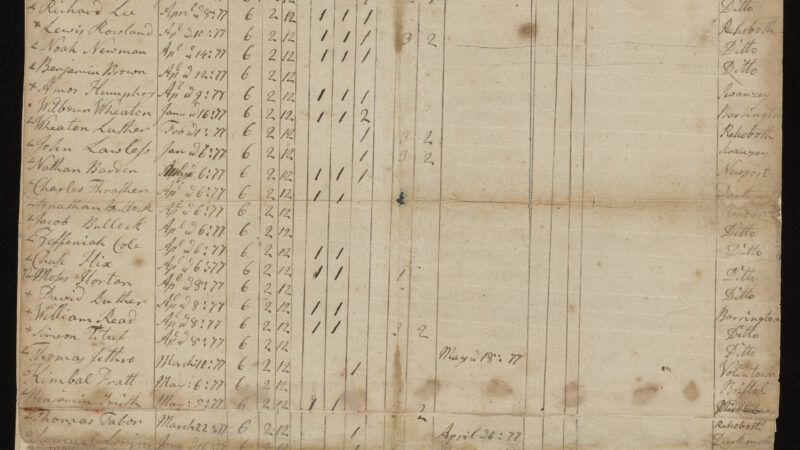 Richard Lee April 8: 77 6 2 12 1 1 1 Ditto
Lewis Rowland Ap 10: 77 6 2 12 1 1 1 3 2 Rehoboth
Noah Newman Ap 14: 77 6 2 12 1 1 1 Ditto
Benjamin Brown Ap 12: 77 6 2 12 Ditto
Amos Humphry Ap 9: 77 6 2 12 1 1 1 Swanzey
Wilbeur Wheaton Jan 16: 77 6 2 12 1 1 2 Barrington
Wheaton Luther Feb 1: 77 6 2 12 1 3 2 Rehoboth
John Lawless Jan 6: 77 6 2 12 1 3 2 Swanzey
Nathan Barden 6: 77 6 2 12 1 1 1 Newport
Charles Thrasher Ap 6: 77 6 2 12 1 1
Jonathan Ap 6: 77 6 2 12
Jacob Bullock Ap 6: 77 6 2 12 Ditto
Zeffeniah Cole Ap 6: 77 6 2 12 1 1 Ditto
Chase Hix Ap 6: 77 6 2 12 1 1 1 Ditto
Moses Horton Ap 8: 77 6 2 12 Ditto
David Luther Ap 8: 77 6 2 12 1 1 Barrington
William Read Ap 8: 77 6 2 12 1 1 3 2 Ditto
Simeon Titus Ap 8: 77 6 2 12 Ditto
Thomas Jethro March 10: 77 6 2 12 1 May 18: 77 Voluntown
Kimbal Pratt May: 6: 77 6 2 12 Bristol
Benjamin Smith May: 5: 77 6 2 12 1 1 2
Thomas Tabor March 22: 77 6 2 12 Rehoboth
April 26: 77